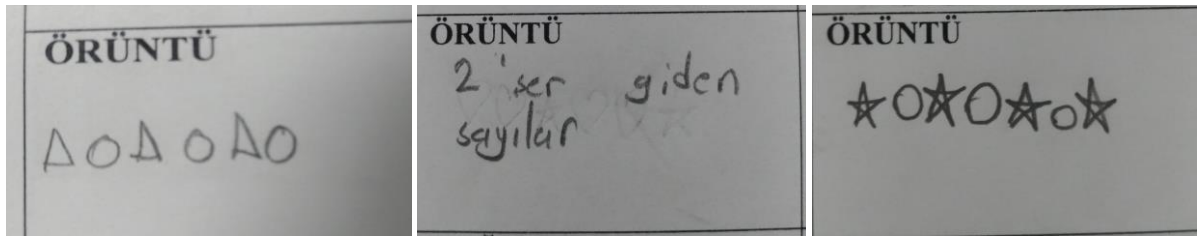 ÖRÜNTÜ
ÖRÜNTÜ
2'ser giden
sayılar
ÖRÜNTÜ